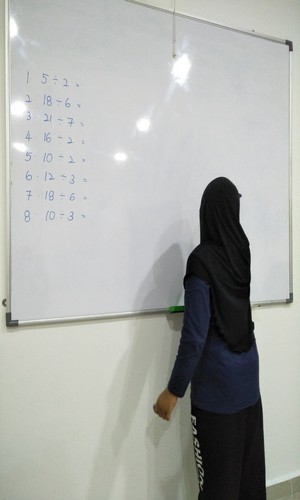 1. 5 ÷ 2 =
2. 18 ÷ 6 =
3. 21 ÷ 7 =
4. 16 ÷ 2 =
5. 10 ÷ 2 =
6. 12 ÷ 3 =
7. 18 ÷ 6 =
8. 10 ÷ 3 =
FASHION